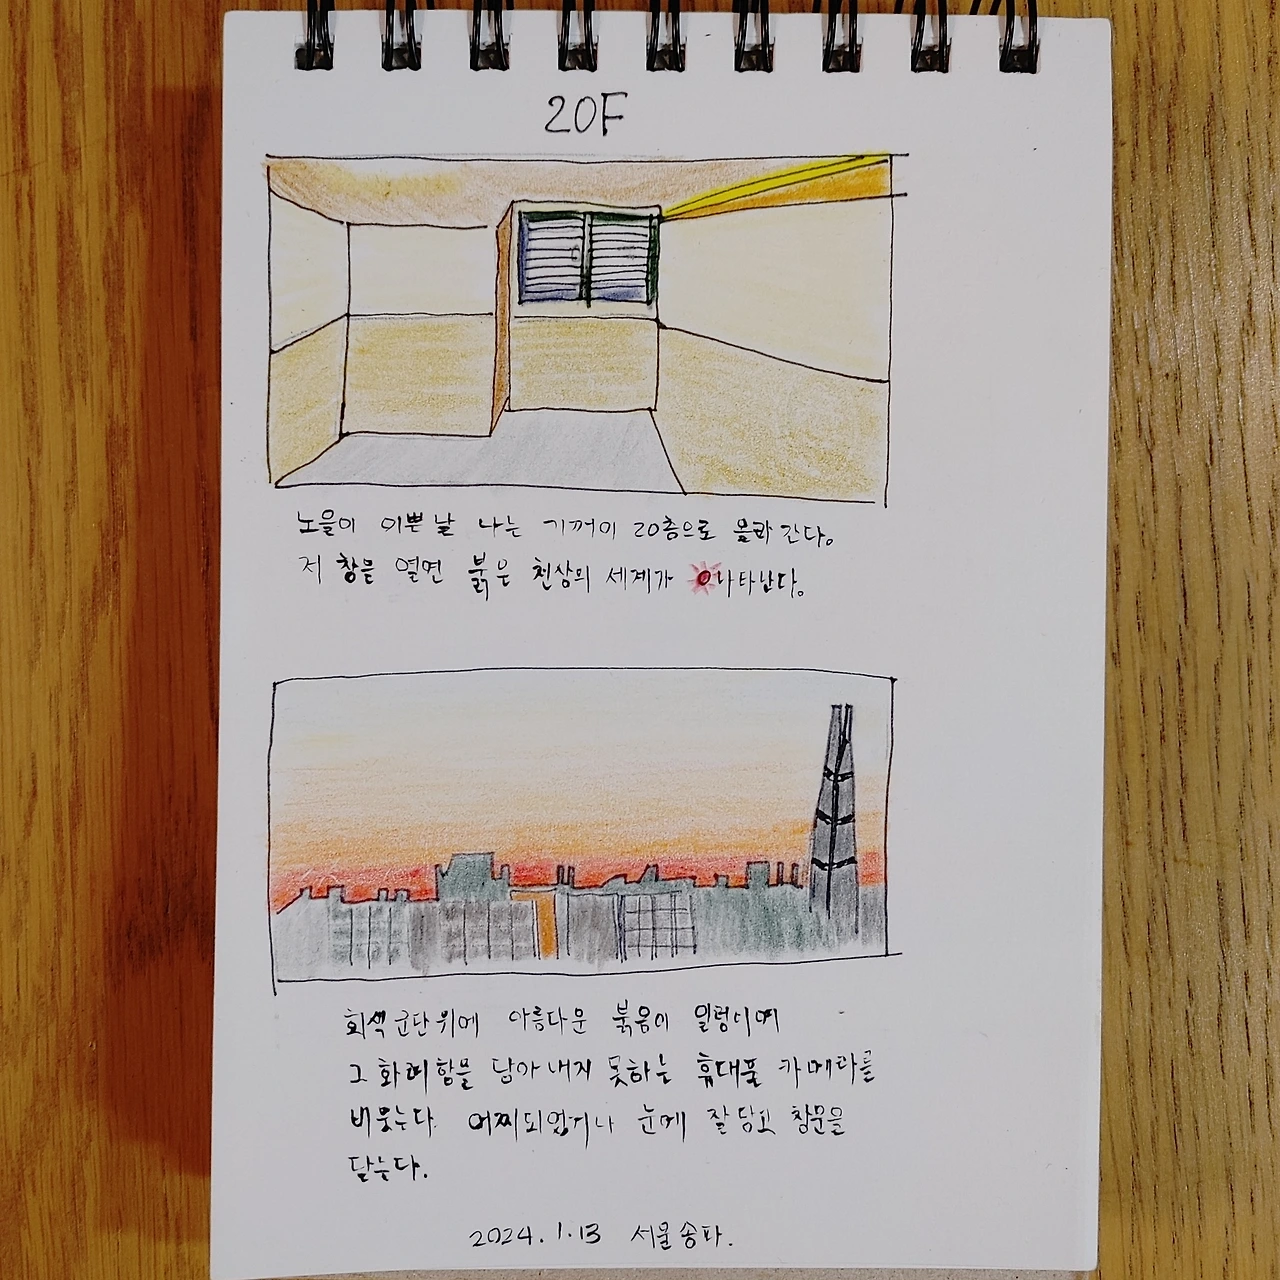 20F
노을이 이쁜 날 나는 기꺼이 20층으로 올라 간다.
저 창을 열면 붉은 천상의 세계가 나타난다.
회색 군단 위에 아름다운 붉음이 일렁이며
그 화려함을 담아 내지 못하는 휴대폴 카메라를
비웃는다. 어찌되었거나 눈에 잘 담고 창문을
닫는다.
2024.1.13 서울 송파.